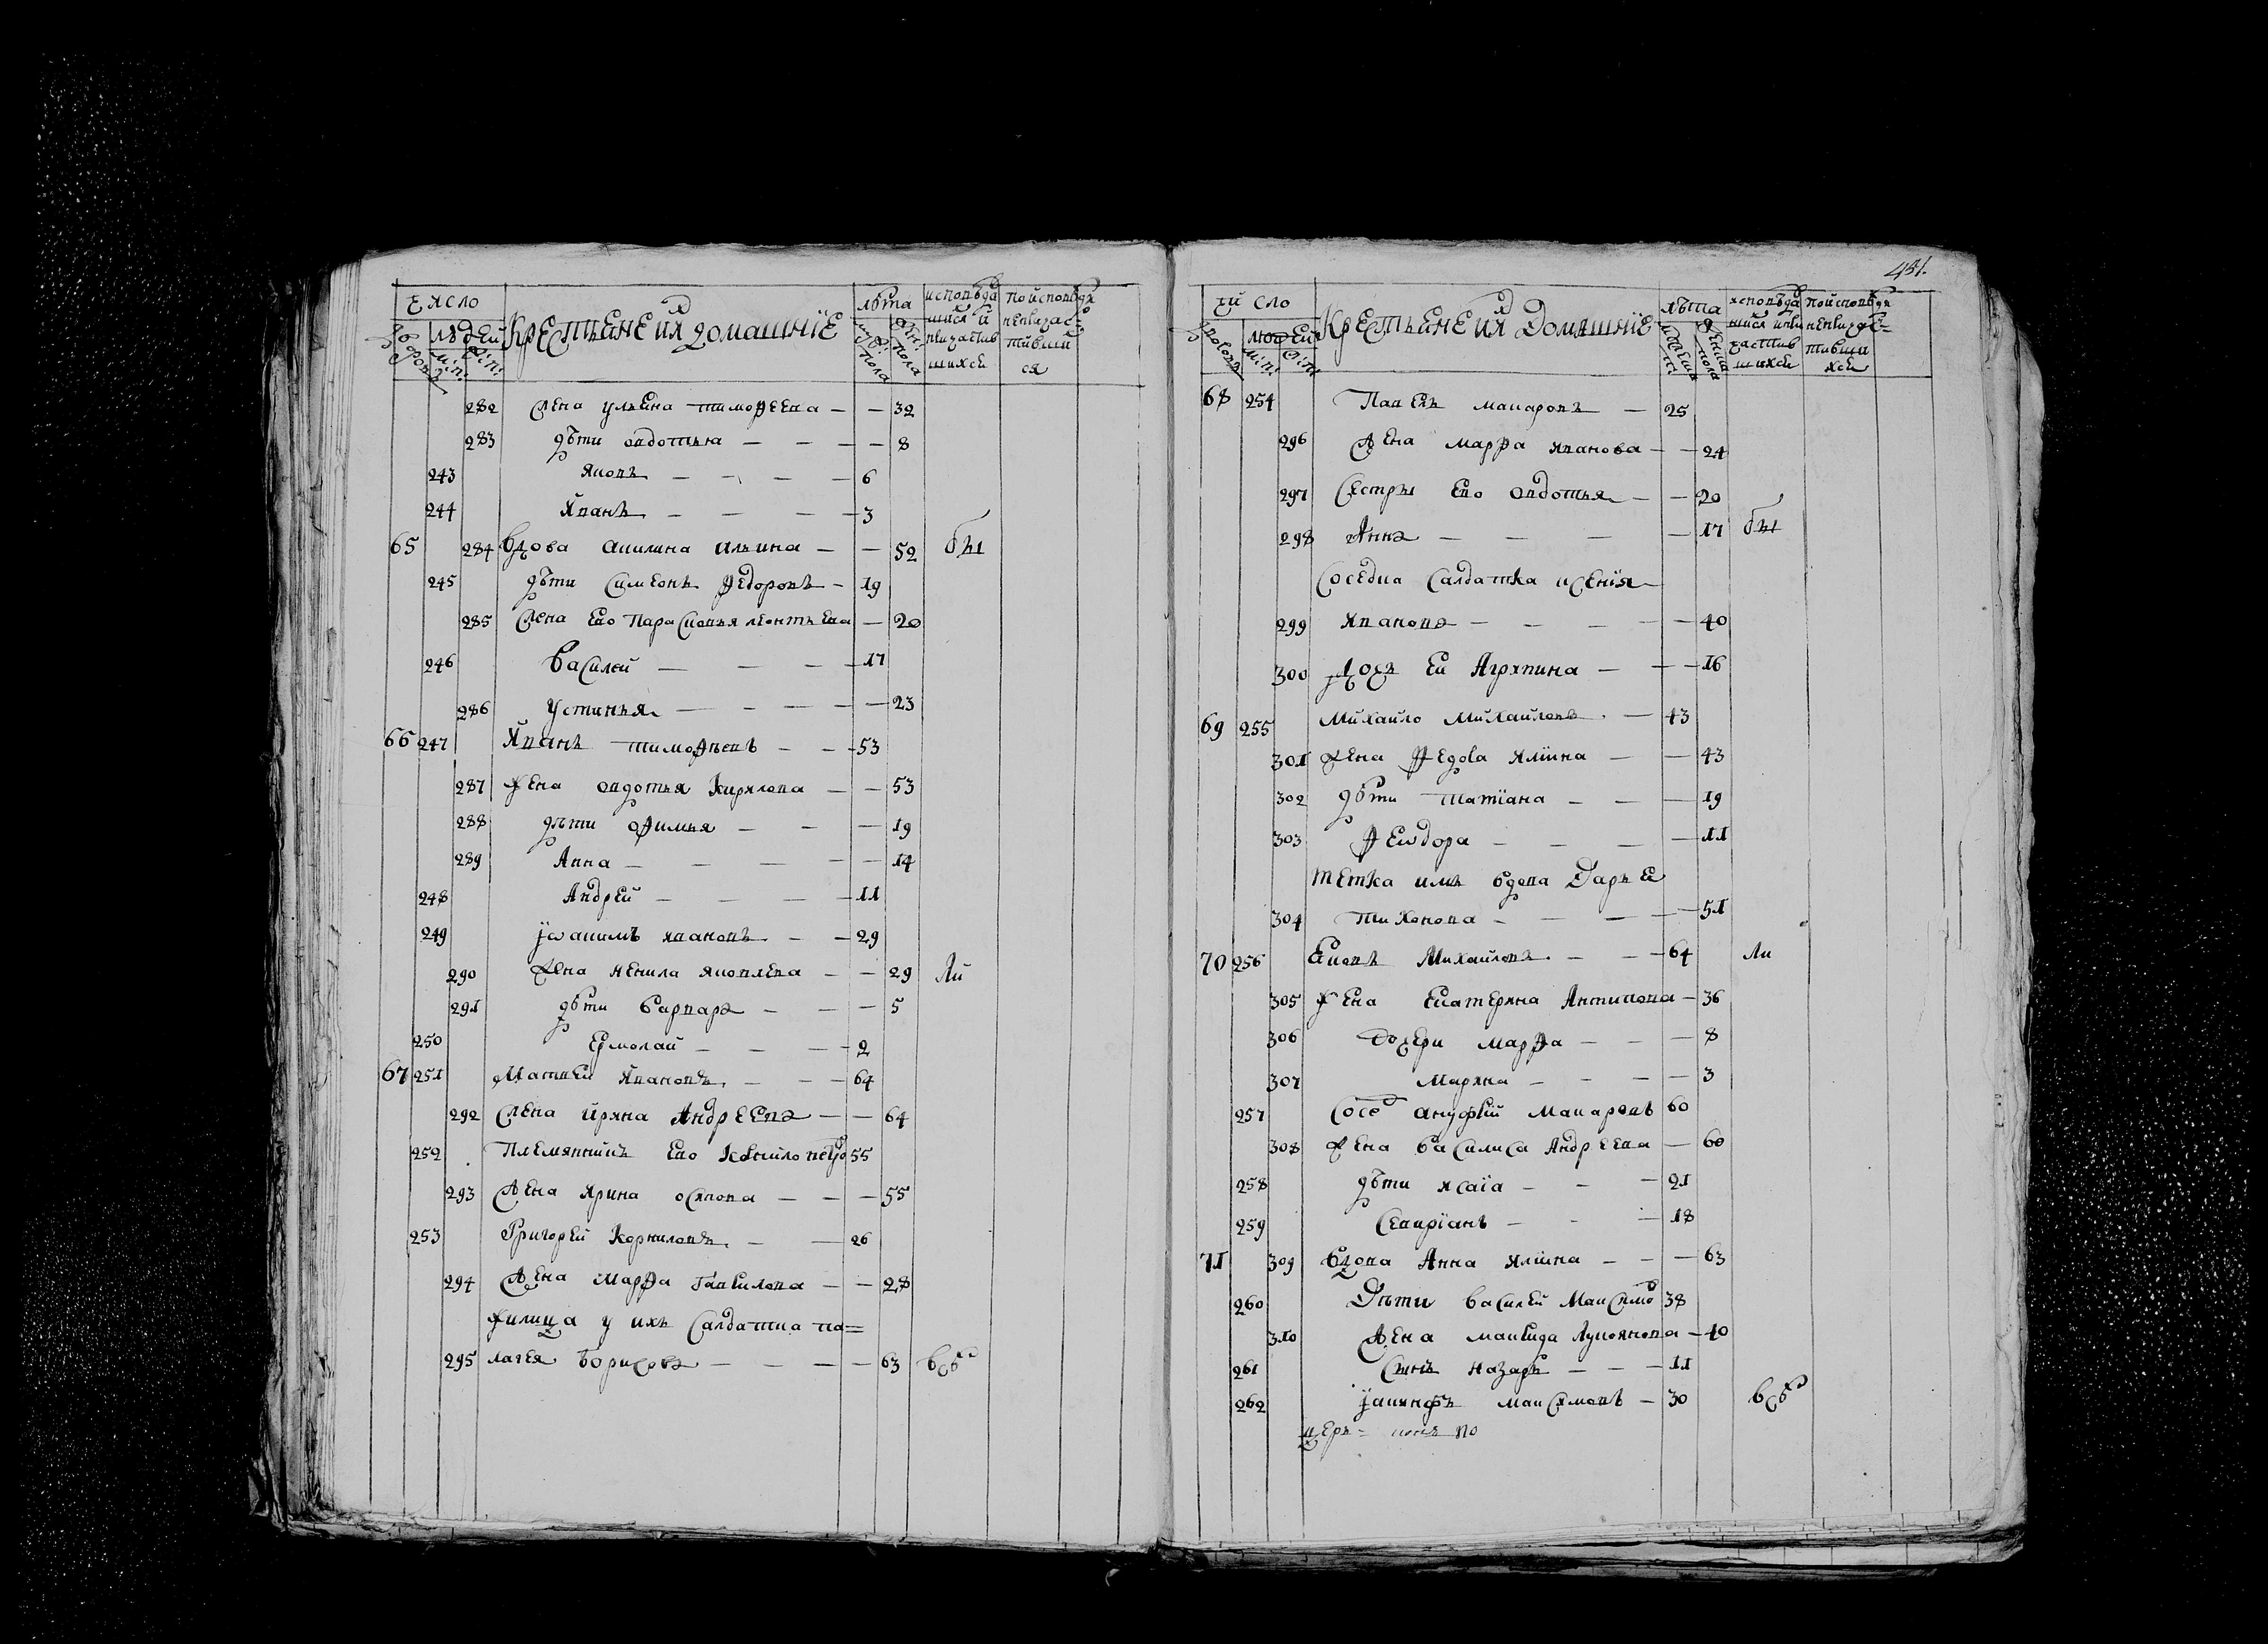 число
дворовъ
людей
м: п:
ж: п:
Крестьяне и ихъ домашнїе
лѣта
муж: пола
жен: пола
исповѣда
шися и
причастив
шихся
по исповѣди
непричас=
тивши
ся
282 Жена ульяна тимофеева — — 32
283 дѣти овдотья — — — — 8
243 яковъ — — — — 6
244 Иванъ — — — 3
65 284 вдова акилина ильина — — 52 бы
245 дѣти Симеонъ Федоровъ — 19
285 Жена ево Парасковья леонтьева — 20
246 Василей — — — 17
286 устинья — — — — — 23
66 247 Иванъ тимофѣевъ — — 53
287 жена овдотья кирилова — — 53
288 дѣти офимья — — — 19
289 Анна — — — — — 14
248 Андрей — — — — 11
249 Іѡакимъ ивановъ — — 29
290 жена ненила яковлева — — 29 Ли
291 дѣти варвара — — — 5
250 Ермолай — — — 2
67 251 Матвей Ивановъ — — — 64
292 Жена Ирина Андреева — — 64
252 Племянникъ ево Корнило петро 55
293 Жена Ирина осипова — — — 55
253 Григорей Корниловъ — — 26
294 Жена марфа гаврилова — — 28
жилица у ихъ Салдатка па=
295 лагея Борисова — — — — 63
431.
число
дворовъ
людей
м: п:
ж: п:
Крестьяне и ихъ Домашнїе
лѣта
исповѣда
шися и при
частив
шихся
по исповѣди
непричас=
тивши
хся
68 254 Павелъ макаровъ — 25
296 Жена марфа иванова — — 24
297 Сестры ево овдотья — — 20
298 Анна — — — — 17 бы
Соседка Салдатка ксенїя
299 Иванова — — — — — 40
300 Дочь ей Агрипина — — — 16
69 255 Михайло Михайловъ — 43
301 жена Федора Илїина — — 43
302 дѣти татїана — — — 19
303 Феѡдора — — — — 11
тетка имъ вдова Дарья
304 тихонова — — — — 51
70 256 Яковъ Михайловъ — — — 64 Ли
305 жена Екатерина Антипова — 36
306 дочери марфа — — — 8
307 Марина — — — — 3
257 Сосед ануфрїй макаровъ 60
308 жена василиса Андреева — 60
258 дѣти исаїа — — — 21
259 Севирїанъ — — — 18
71 309 вдова Анна Илїина — — — 63
260 Дѣти василей Максимо 38
310 Жена макрида лукоянова — 40
261 Сынъ назаръ — — — 11
262 Іакинфъ максимовъ — 30